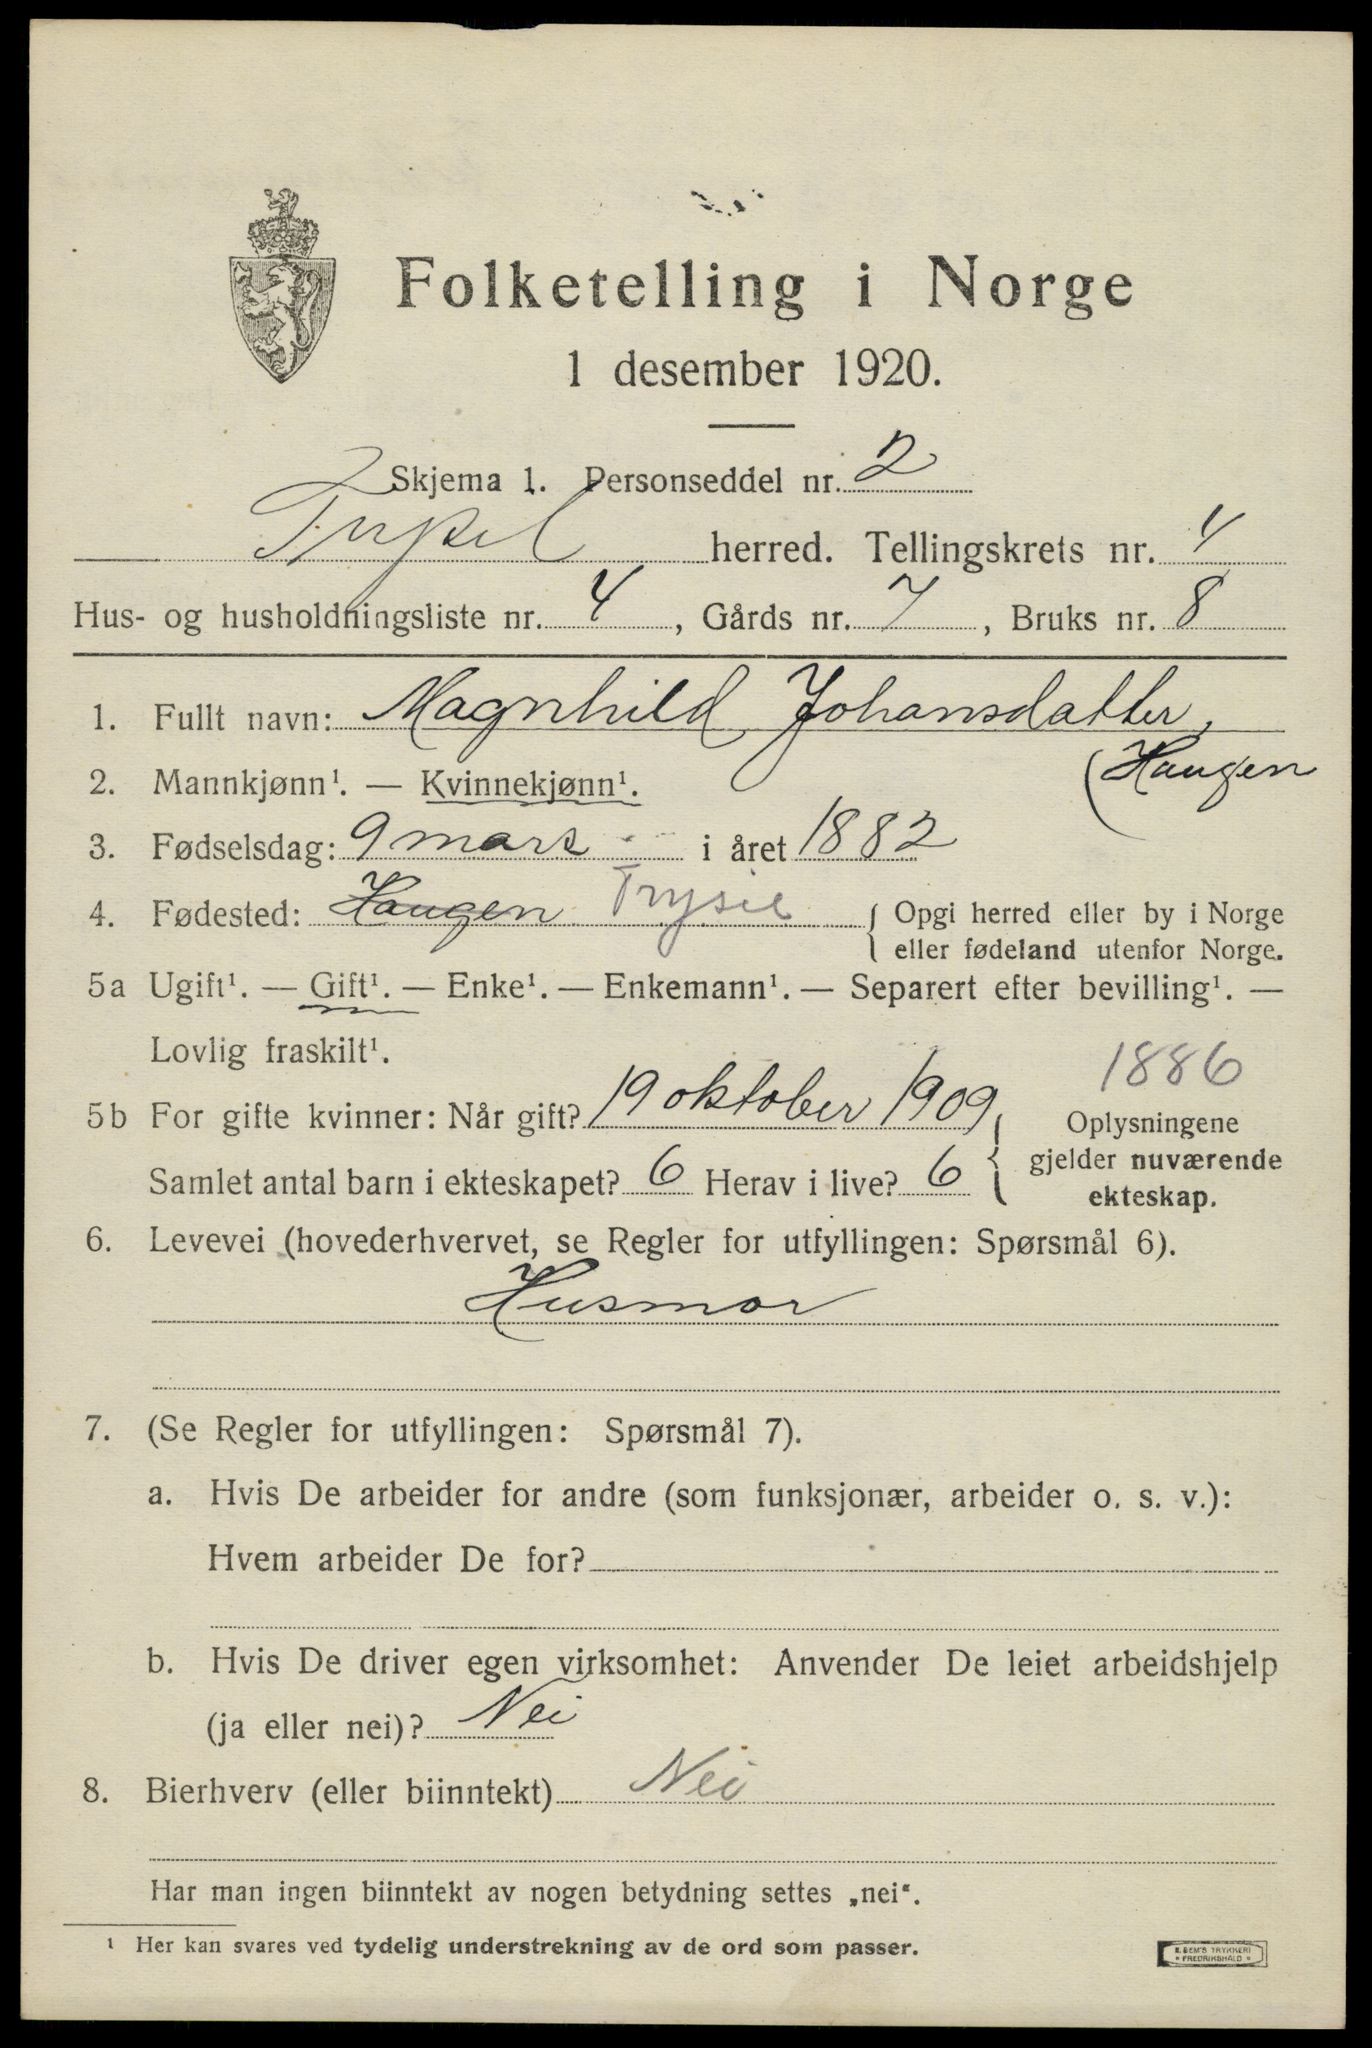 Folketelling i Norge
1 desember 1920.
Skjema 1. Personseddel nr. 2
Trysil herred. Tellingskrets nr. 4
Hus- og husholdningsliste nr. 4, Gårds nr. 7, Bruks nr. 8
1. Fullt navn: Magnhild Johansdatter,
(Haugen
2. Mannkjønn¹. — Kvinnekjønn¹.
3. Fødselsdag: 9 mars i året 1882
4. Fødested: Haugen Trysil { Opgi herred eller by i Norge
eller fødeland utenfor Norge.
5a Ugift¹. — Gift¹. — Enke¹. — Enkemann¹. — Separert efter bevilling¹. —
Lovlig fraskilt¹.
1886
5b For gifte kvinner: Når gift? 19 oktober 1909
Samlet antal barn i ekteskapet? 6 Herav i live? 6
Oplysningene
gjelder nuværende
ekteskap.
6. Levevei (hovederhvervet, se Regler for utfyllingen: Spørsmål 6).
Husmor
7. (Se Regler for utfyllingen: Spørsmål 7).
a. Hvis De arbeider for andre (som funksjonær, arbeider o. s. v.):
Hvem arbeider De for?
b. Hvis De driver egen virksomhet: Anvender De leiet arbeidshjelp
(ja eller nei)? Nei
8. Bierhverv (eller biinntekt) Nei
Har man ingen biinntekt av nogen betydning settes „nei“.
¹ Her kan svares ved tydelig understrekning av de ord som passer.
E. SEM'S TRYKKERI
* FREDRIKSHALD *